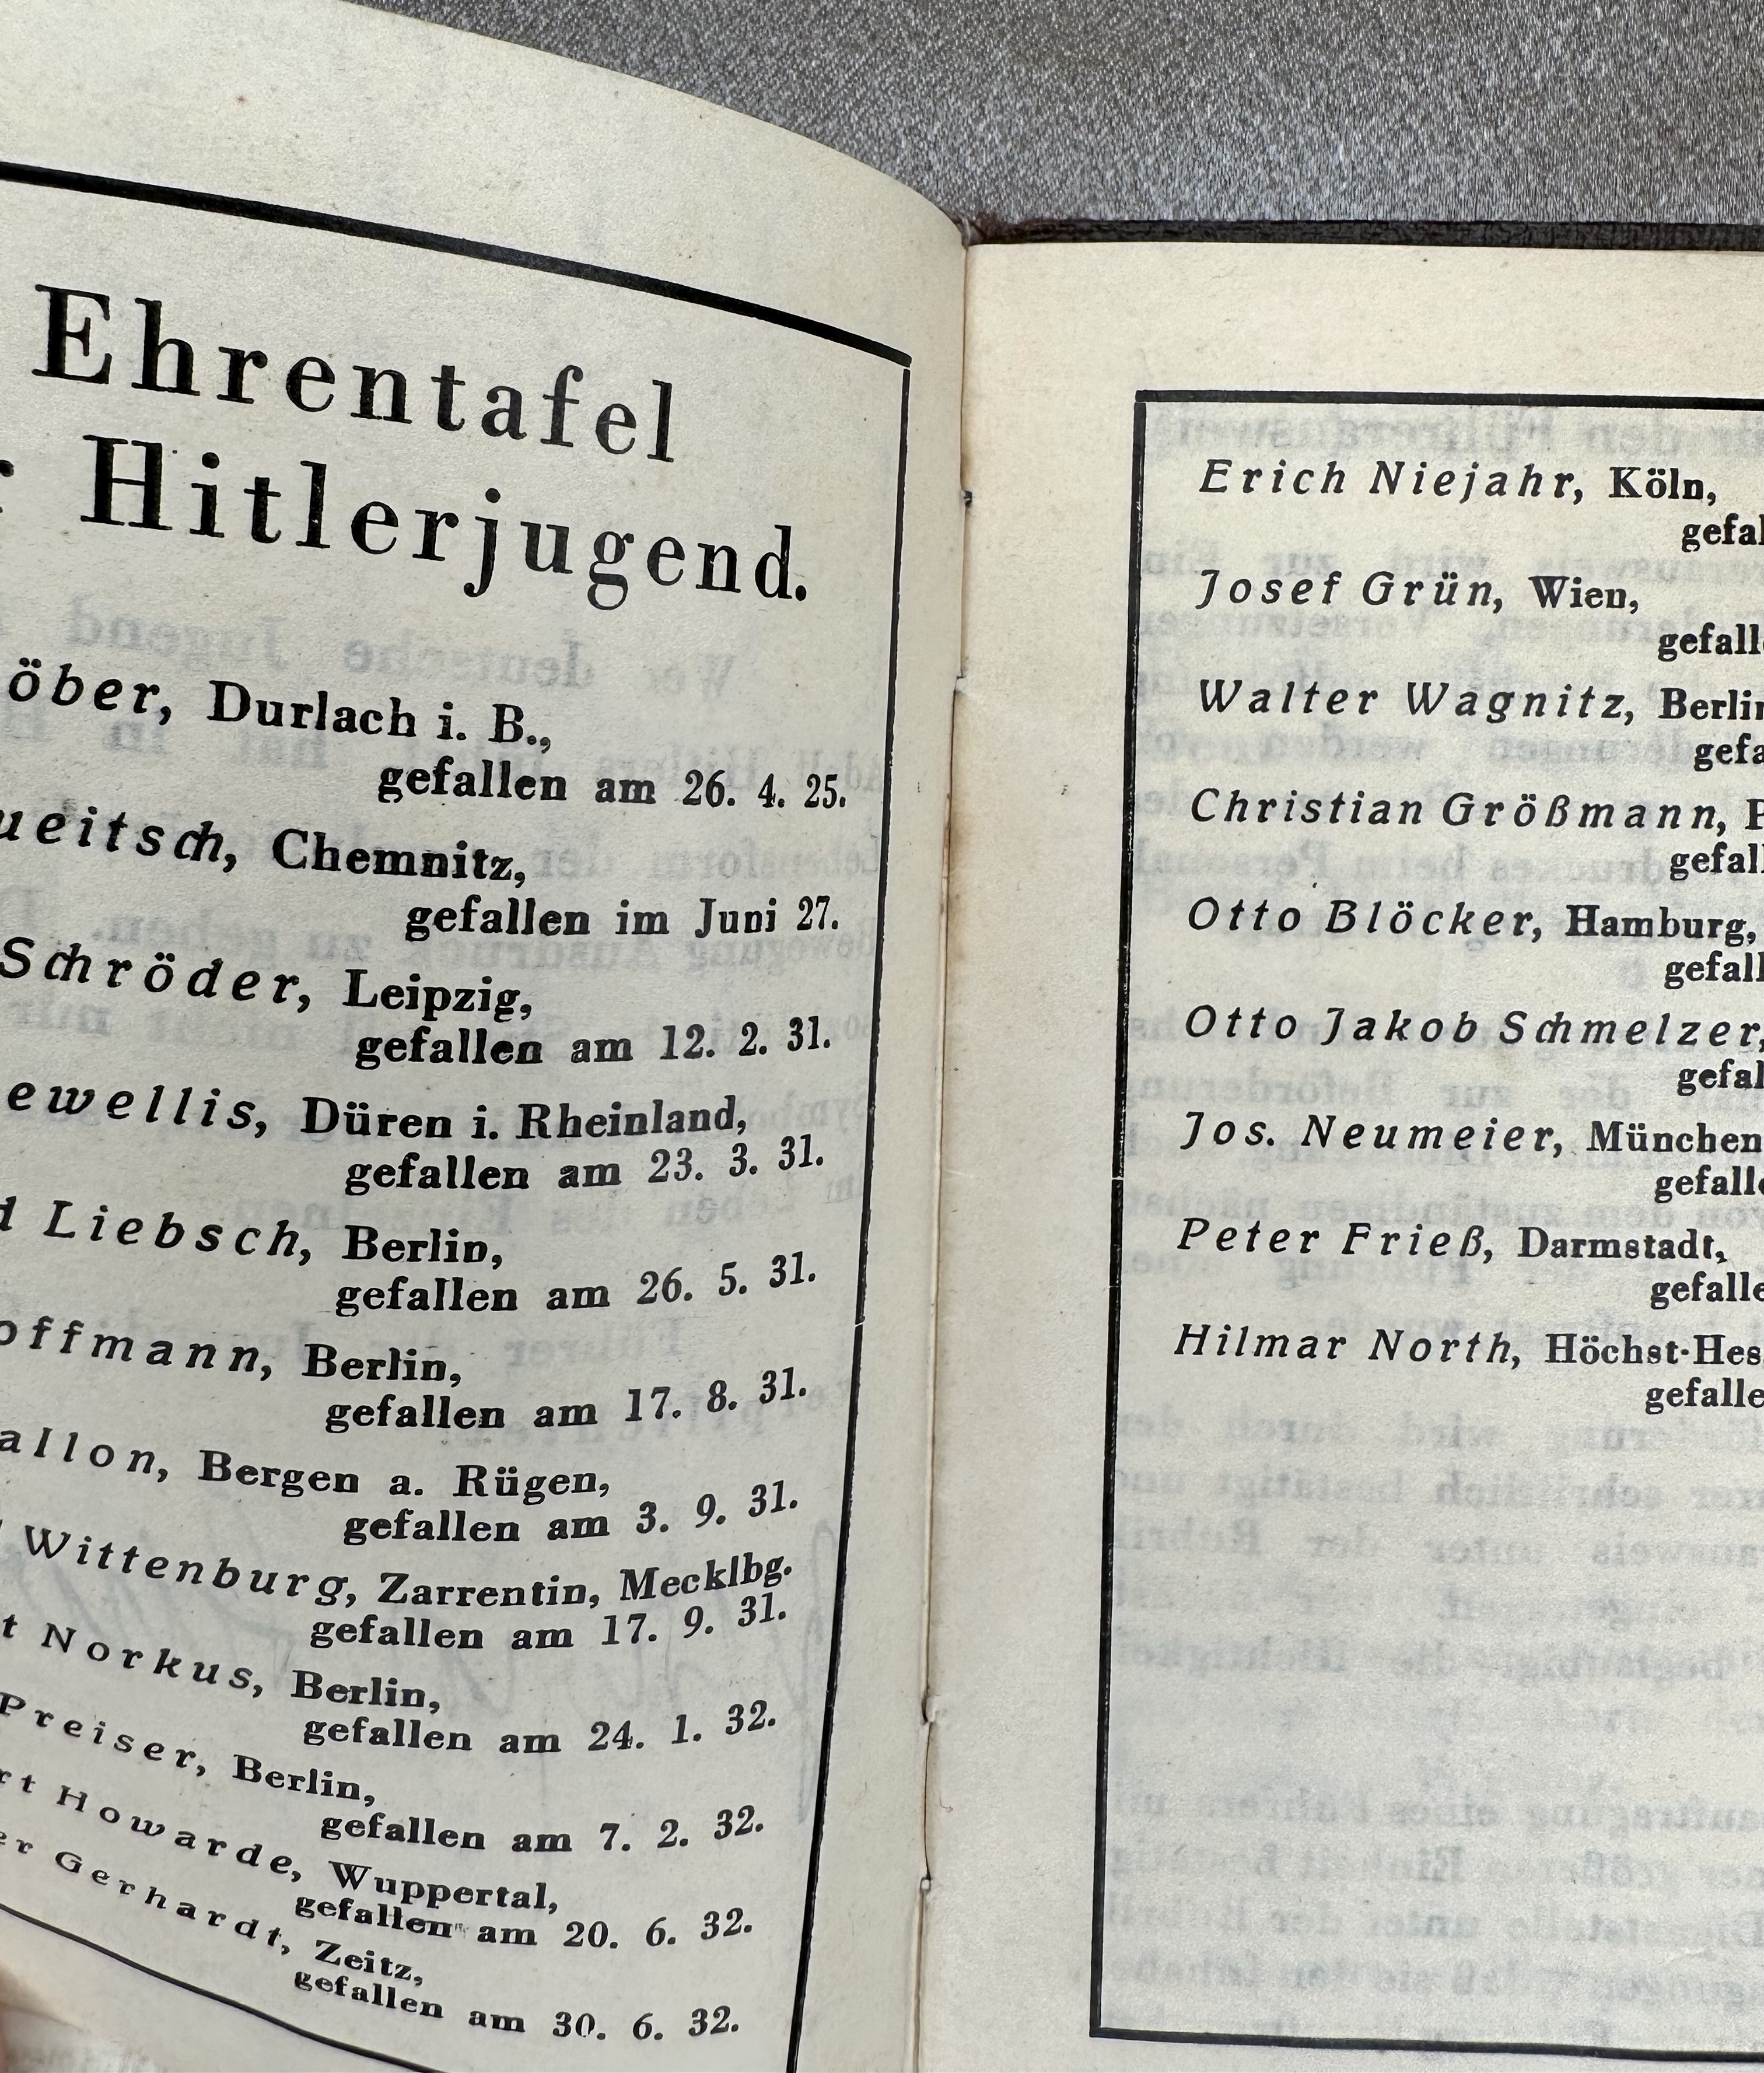 Ehrentafel
r Hitlerjugend.
öber, Durlach i. B.,
gefallen am 26. 4. 25.
ueitsch, Chemnitz,
gefallen im Juni 27.
Schröder, Leipzig,
gefallen am 12. 2. 31.
ewellis, Düren i. Rheinland,
gefallen am 23. 3. 31.
d Liebsch, Berlin,
gefallen am 26. 5. 31.
offmann, Berlin,
gefallen am 17. 8. 31.
allon, Bergen a. Rügen,
gefallen am 3. 9. 31.
Wittenburg, Zarrentin, Mecklbg.
gefallen am 17. 9. 31.
t Norkus, Berlin,
gefallen am 24. 1. 32.
Preiser, Berlin,
gefallen am 7. 2. 32.
rt Howarde, Wuppertal,
gefallen am 20. 6. 32.
er Gerhardt, Zeitz,
gefallen am 30. 6. 32.
Erich Niejahr, Köln,
gefal
Josef Grün, Wien,
gefall
Walter Wagnitz, Berlin
gefa
Christian Größmann, P
gefall
Otto Blöcker, Hamburg,
gefall
Otto Jakob Schmelzer,
gefal
Jos. Neumeier, München
gefalle
Peter Frieß, Darmstadt,
gefalle
Hilmar North, Höchst-Hes
gefalle